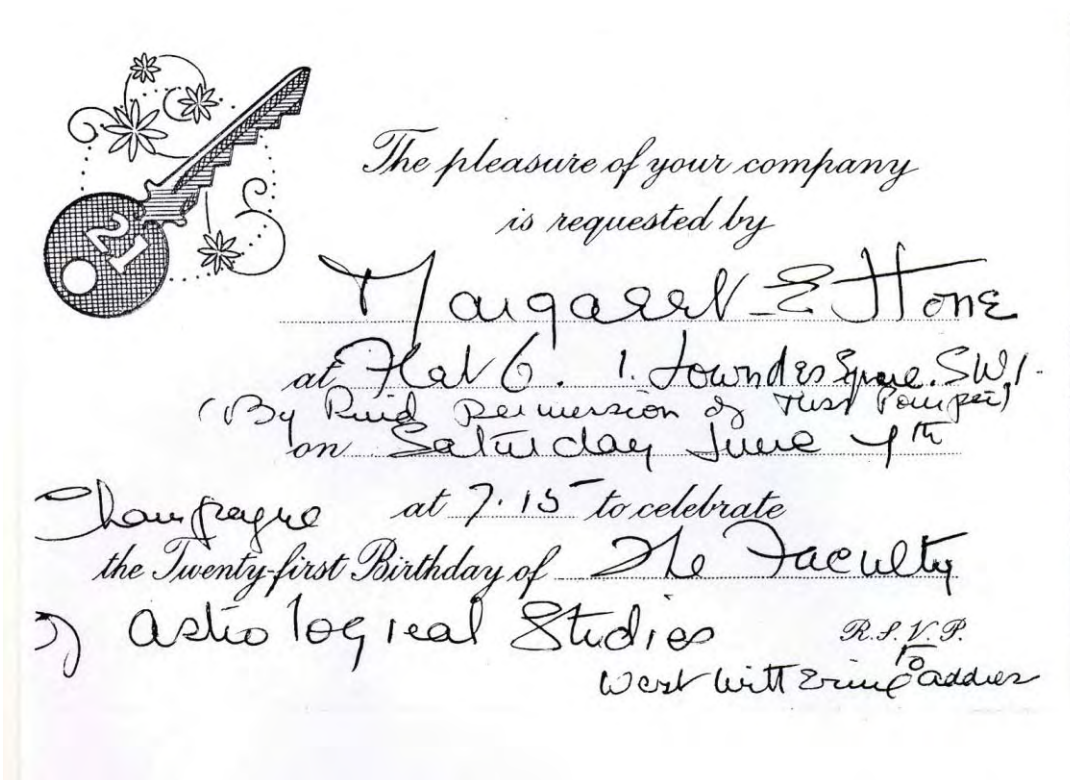 21
The pleasure of your company
is requested by
Margaret E Hone
at Flat 6. 1. Lowndes Square. S.W.1.
(By Kind permission of Miss Pompei)
on Saturday June 4th
Champagne at 7.15 to celebrate
the Twenty-first Birthday of The Faculty
of Astrological Studies R.S.V.P.
to
West Wittering address